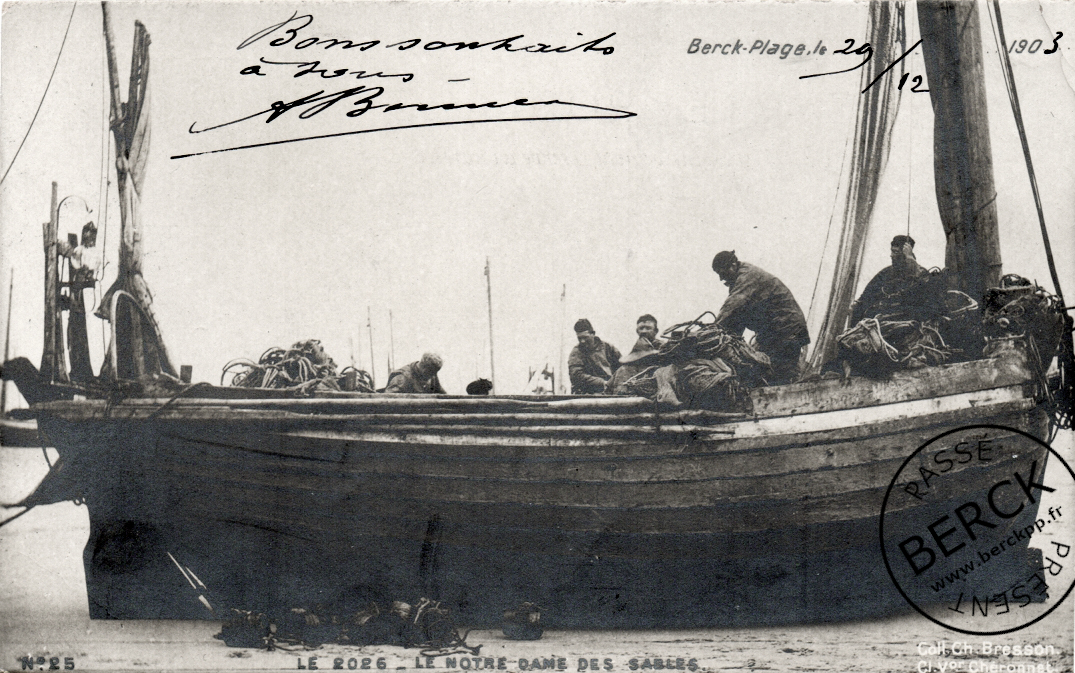 Bons souhaits
à vous –
A Bonnen
Berck-Plage, le 29/12 1903
PASSÉ
BERCK
www.berckpp.fr
PRÉSENT
N° 25
LE 2026 _ LE NOTRE DAME DES SABLES.
Coll. Ch. Bresson.
Cl. Vor Chéronnet.